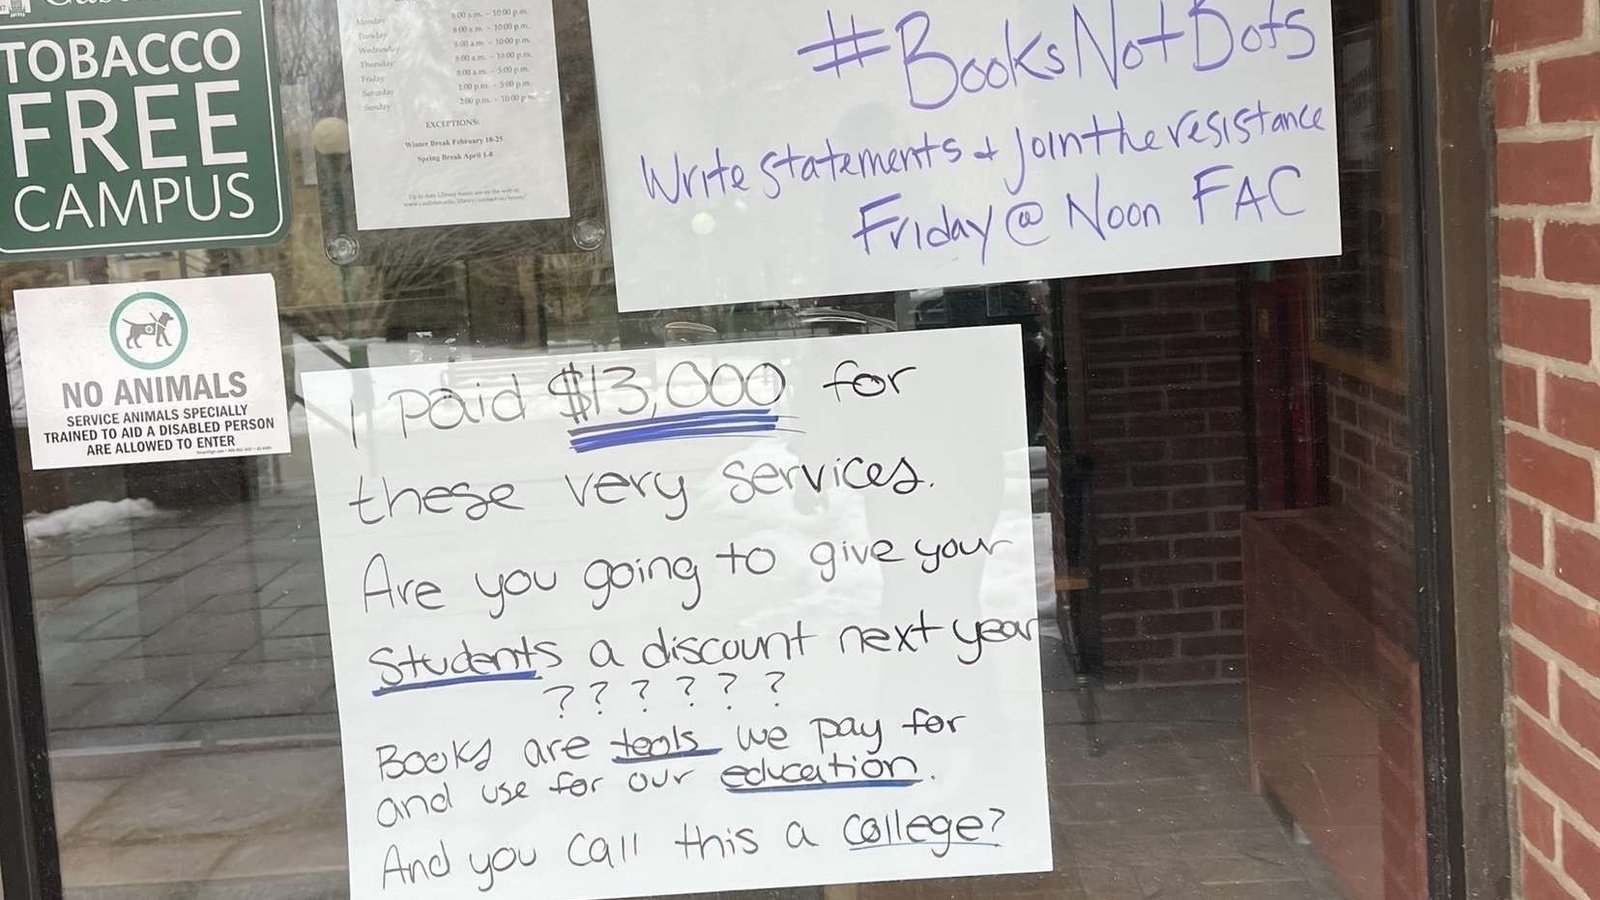 TOBACCO
FREE
CAMPUS
Monday 8:00 a.m. - 10:00 p.m.
Tuesday 8:00 a.m. - 10:00 p.m.
Wednesday 8:00 a.m. - 10:00 p.m.
Thursday 8:00 a.m. - 10:00 p.m.
Friday 8:00 a.m. - 5:00 p.m.
Saturday 1:00 p.m. - 5:00 p.m.
Sunday 2:00 p.m. - 10:00 p.m.
EXCEPTIONS:
Winter Break February 18-25
Spring Break April 1-8
#BooksNotBots
Write statements + Join the resistance
Friday @ Noon FAC
NO ANIMALS
SERVICE ANIMALS SPECIALLY
TRAINED TO AID A DISABLED PERSON
ARE ALLOWED TO ENTER
I paid $13,000 for
these very services.
Are you going to give your
students a discount next year
? ? ? ? ? ?
Books are tools we pay for
and use for our education.
And you call this a college?